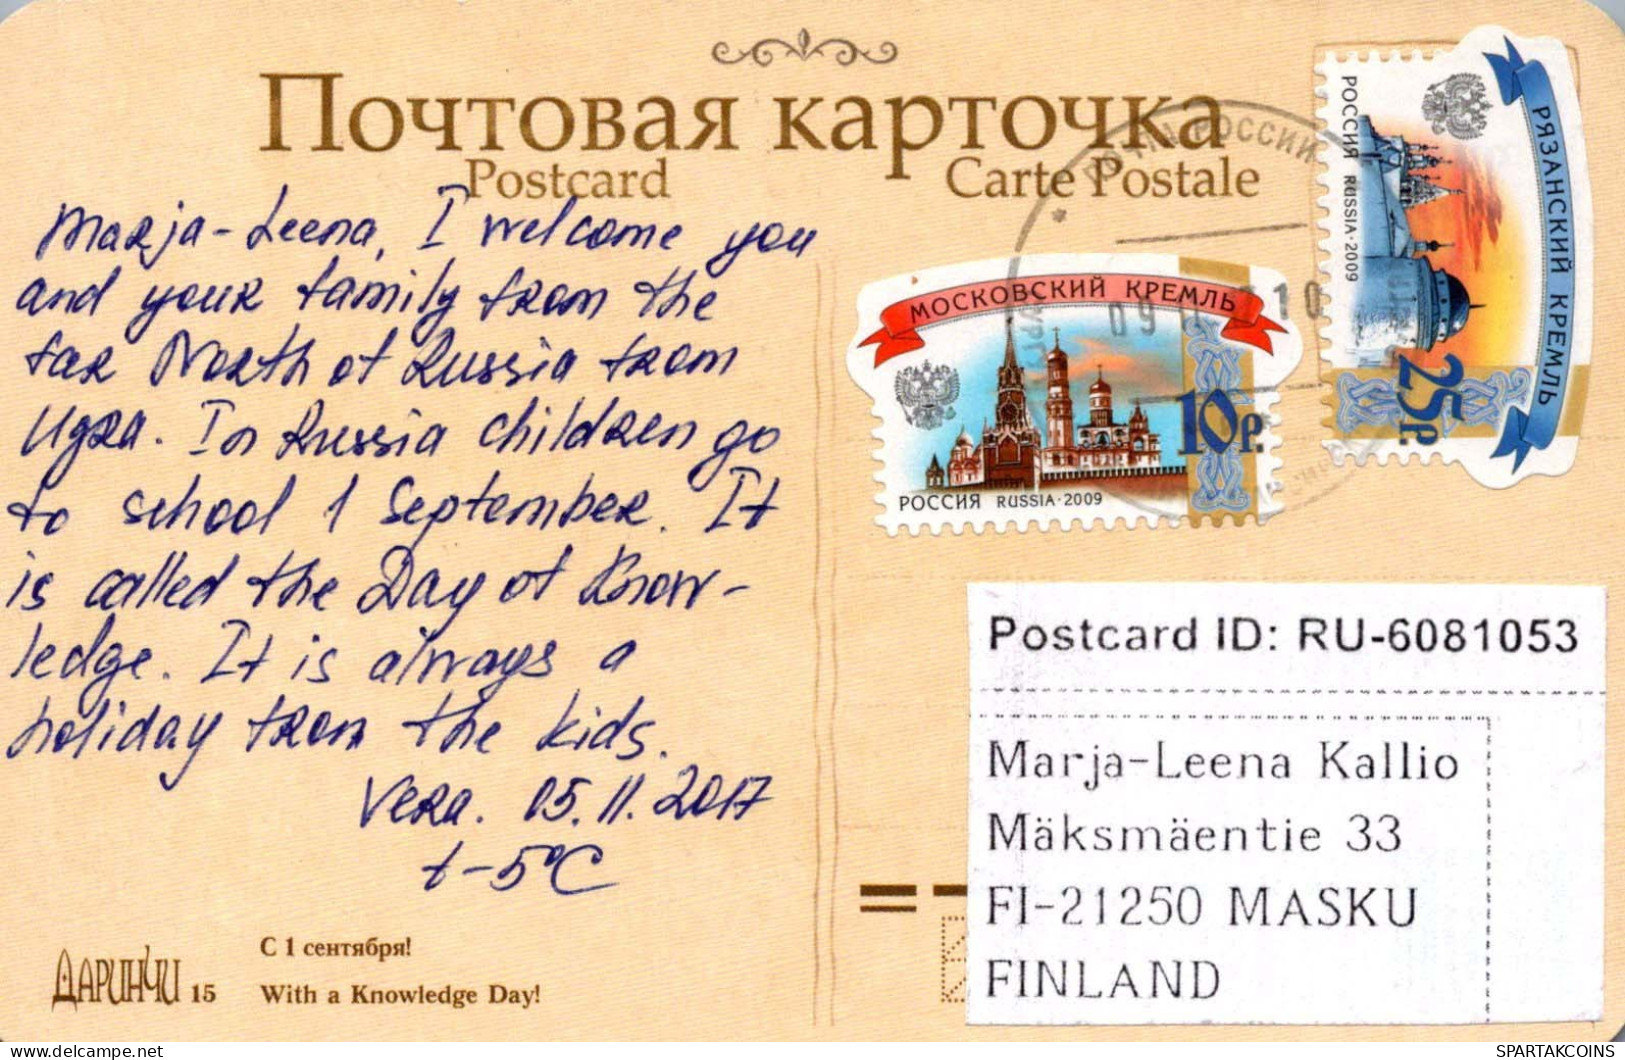 Почтовая карточка
Postcard
Carte Postale
Marja-Leena, I welcome you
and your family from the
far North of Russia from
Ugra. In Russia children go
to school 1 September. It
is called the Day of Know-
ledge. It is always a
holiday from the kids.
Vera. 05.11.2017
t-5°C
ДАРИНЧИ 15
С 1 сентября!
With a Knowledge Day!
МОСКОВСКИЙ КРЕМЛЬ
10р.
РОССИЯ RUSSIA·2009
РЯЗАНСКИЙ КРЕМЛЬ
25р.
РОССИЯ RUSSIA·2009
ПОЧТА РОССИИ
Postcard ID: RU-6081053
Marja-Leena Kallio
Mäksmäentie 33
FI-21250 MASKU
FINLAND
delcampe.net
SPARTAKCOINS